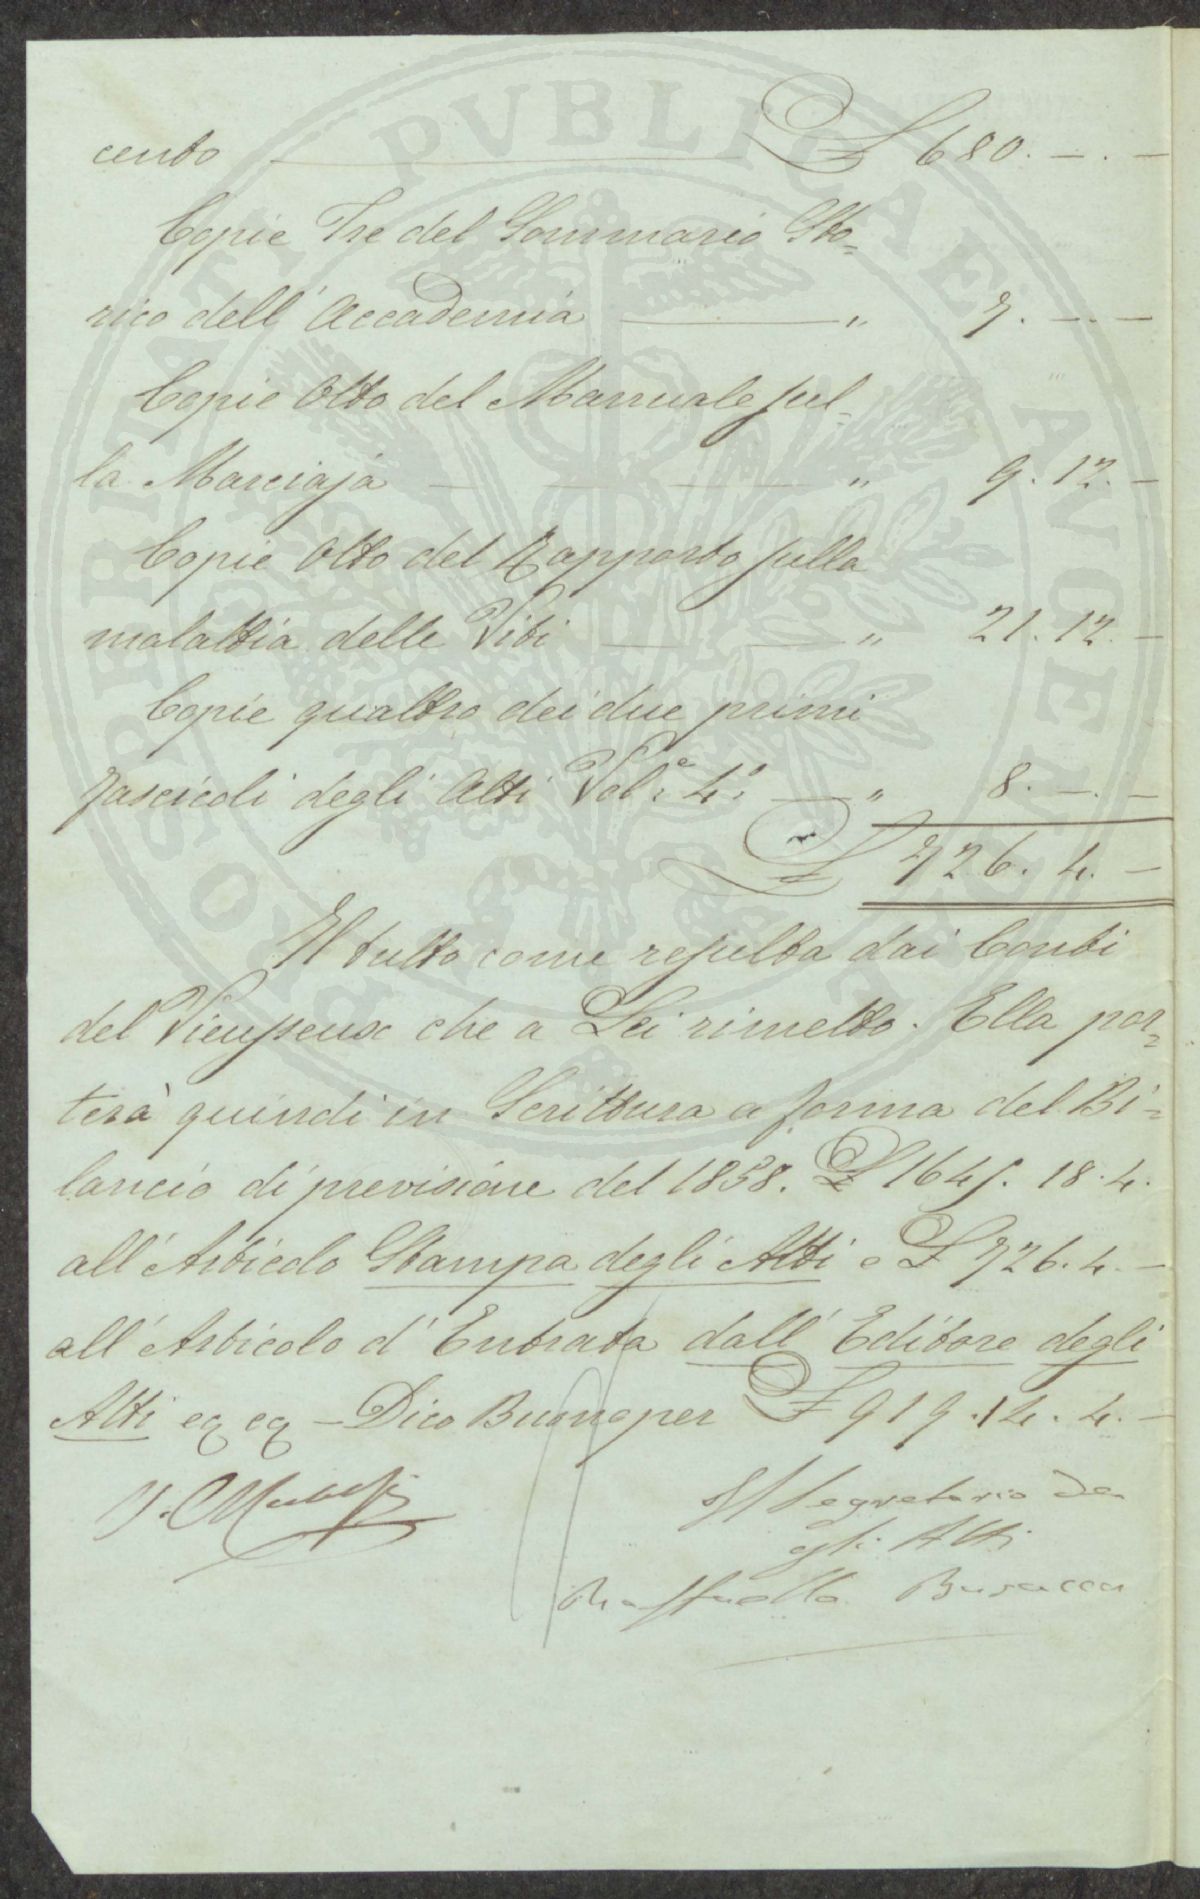 cento £ 680. – . –
Copie Tre del Sommario Sto=
rico dell' Accademia „ 7. – . –
Copie Otto del Manuale sul=
la Marciaja „ 9. 12. –
Copie Otto del Rapporto sulla
malattia delle Viti „ 21. 12. –
Copie quattro dei due primi
fascicoli degli Atti Vol.e 4.o „ 8. – . –
£ 726. 4. –
Il tutto come resulta dai Conti
del Vieusseux che a Lei rimetto. Ella por=
terà quindi in Scrittura a forma del Bi=
lancio di previsione del 1858. £ 1645. 18. 4.
all' Articolo Stampa degli Atti e £ 726. 4. –
all' Articolo d' Entrata dall' Editore degli
Atti – Dico Buono per £ 919. 14. 4. –
Il Segretario de
gli Atti
Raffaello Busacca
PROSPERITATI PVBLICAE AVGENDAE